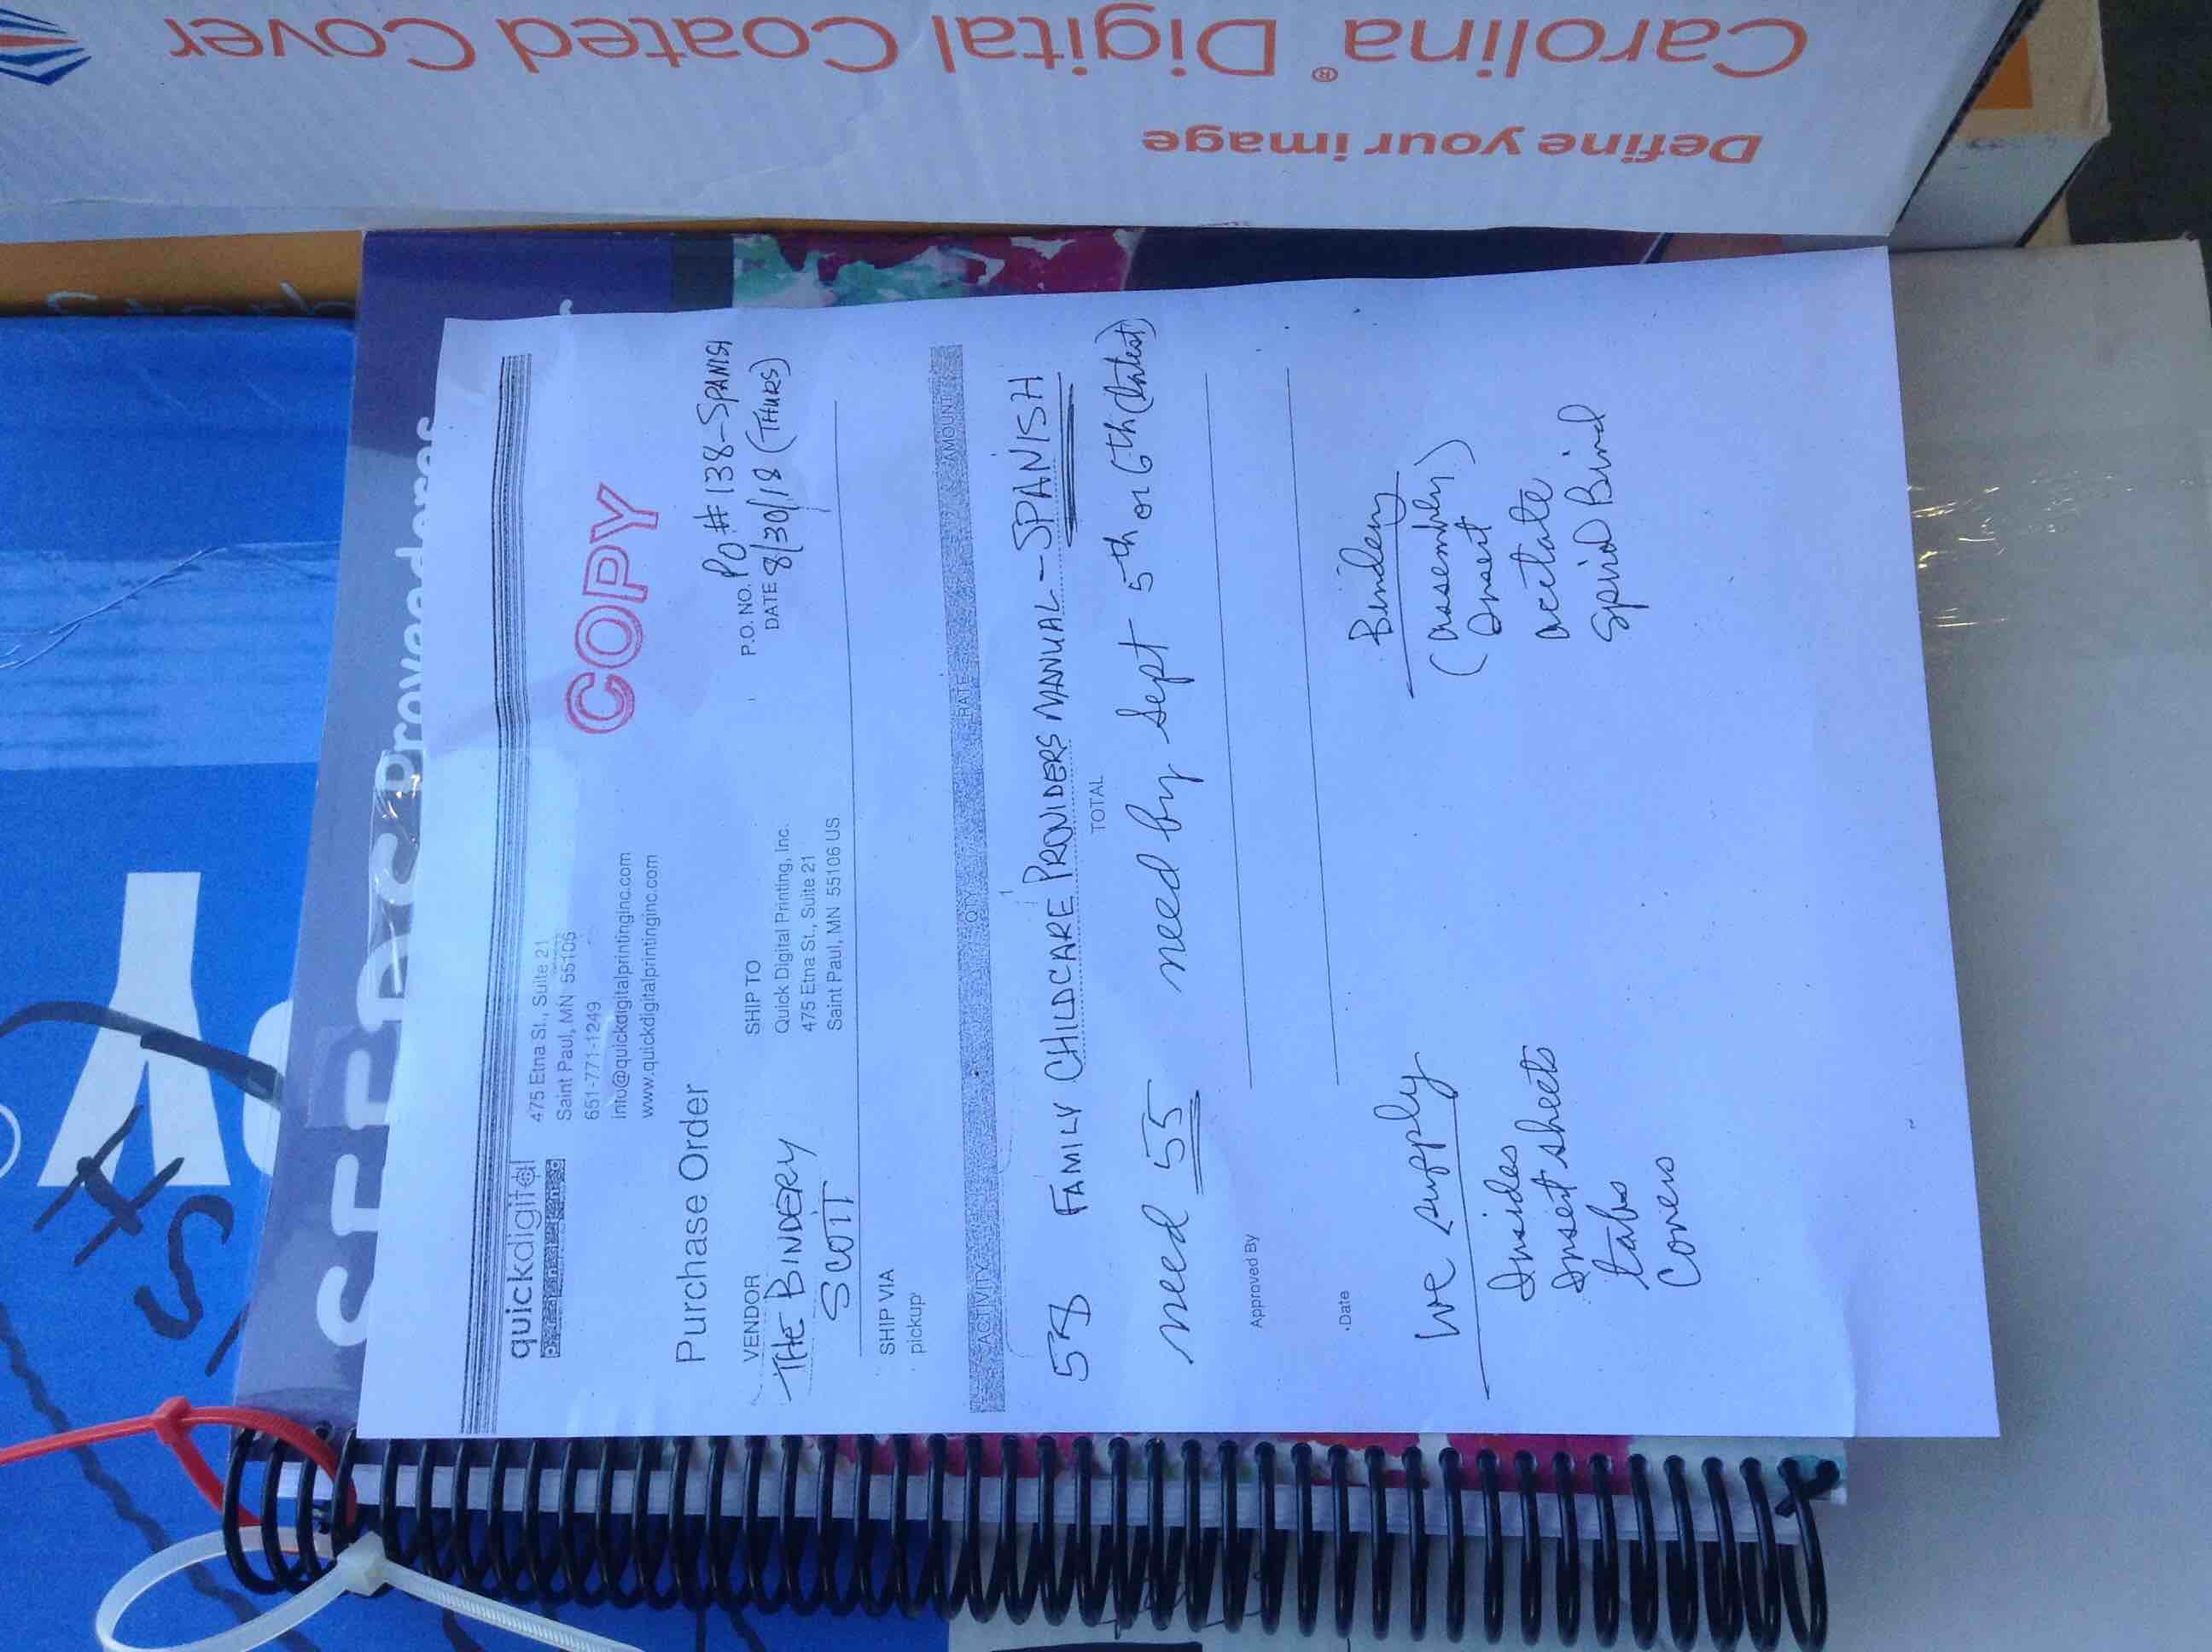 Carolina® Digital Coated Cover
Define your image
Proveedores
quickdigital
475 Etna St., Suite 21
Saint Paul, MN 55106
651-771-1249
info@quickdigitalprintinginc.com
www.quickdigitalprintinginc.com
COPY
Purchase Order
VENDOR
THE BINDERY
SCOTT
SHIP TO
Quick Digital Printing, Inc.
475 Etna St., Suite 21
Saint Paul, MN 55106 US
P.O. NO. PO # 138-SPANISH
DATE 8/30/18 (THURS)
SHIP VIA
pickup
ACTIVITY QTY RATE AMOUNT
58 FAMILY CHILDCARE PROVIDERS MANUAL - SPANISH
TOTAL
need 55 need by Sept 5th or 6th (latest)
Approved By
Date
we supply
Insides
Insert sheets
tabs
Covers
Bindery
(assembly)
Insert
acetate
Spiral Bind